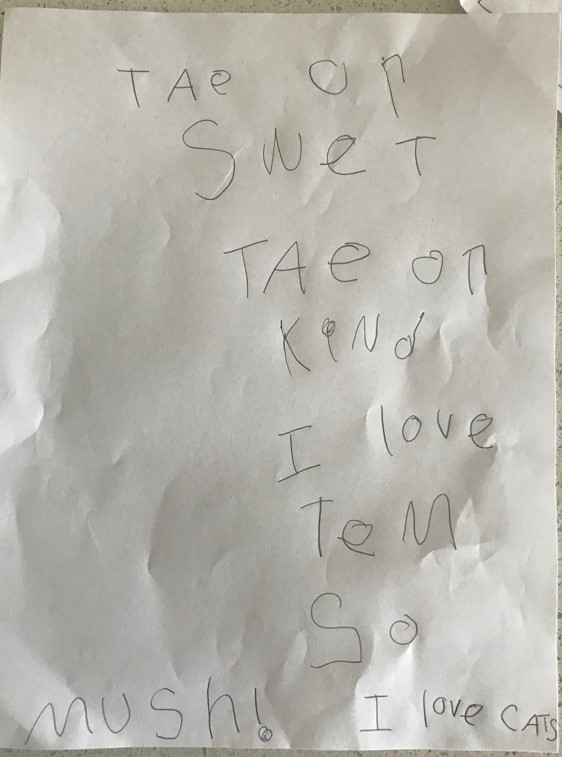 TAe on
SWeT
TAe on
KiNd
I love
TeM
So
MUSh! I love CATS